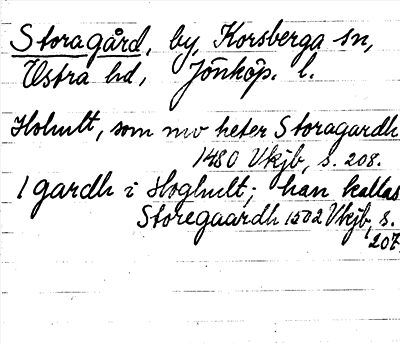 Storagård, by, Korsberga sn,
Östra hd, Jönköp. l.
Hohult, som nw heter Storagardh
1480 Vkjb, s. 208.
1 gardh i Hoghult; han kallas
Storegaardh 1502 Vkjb, s.
207.